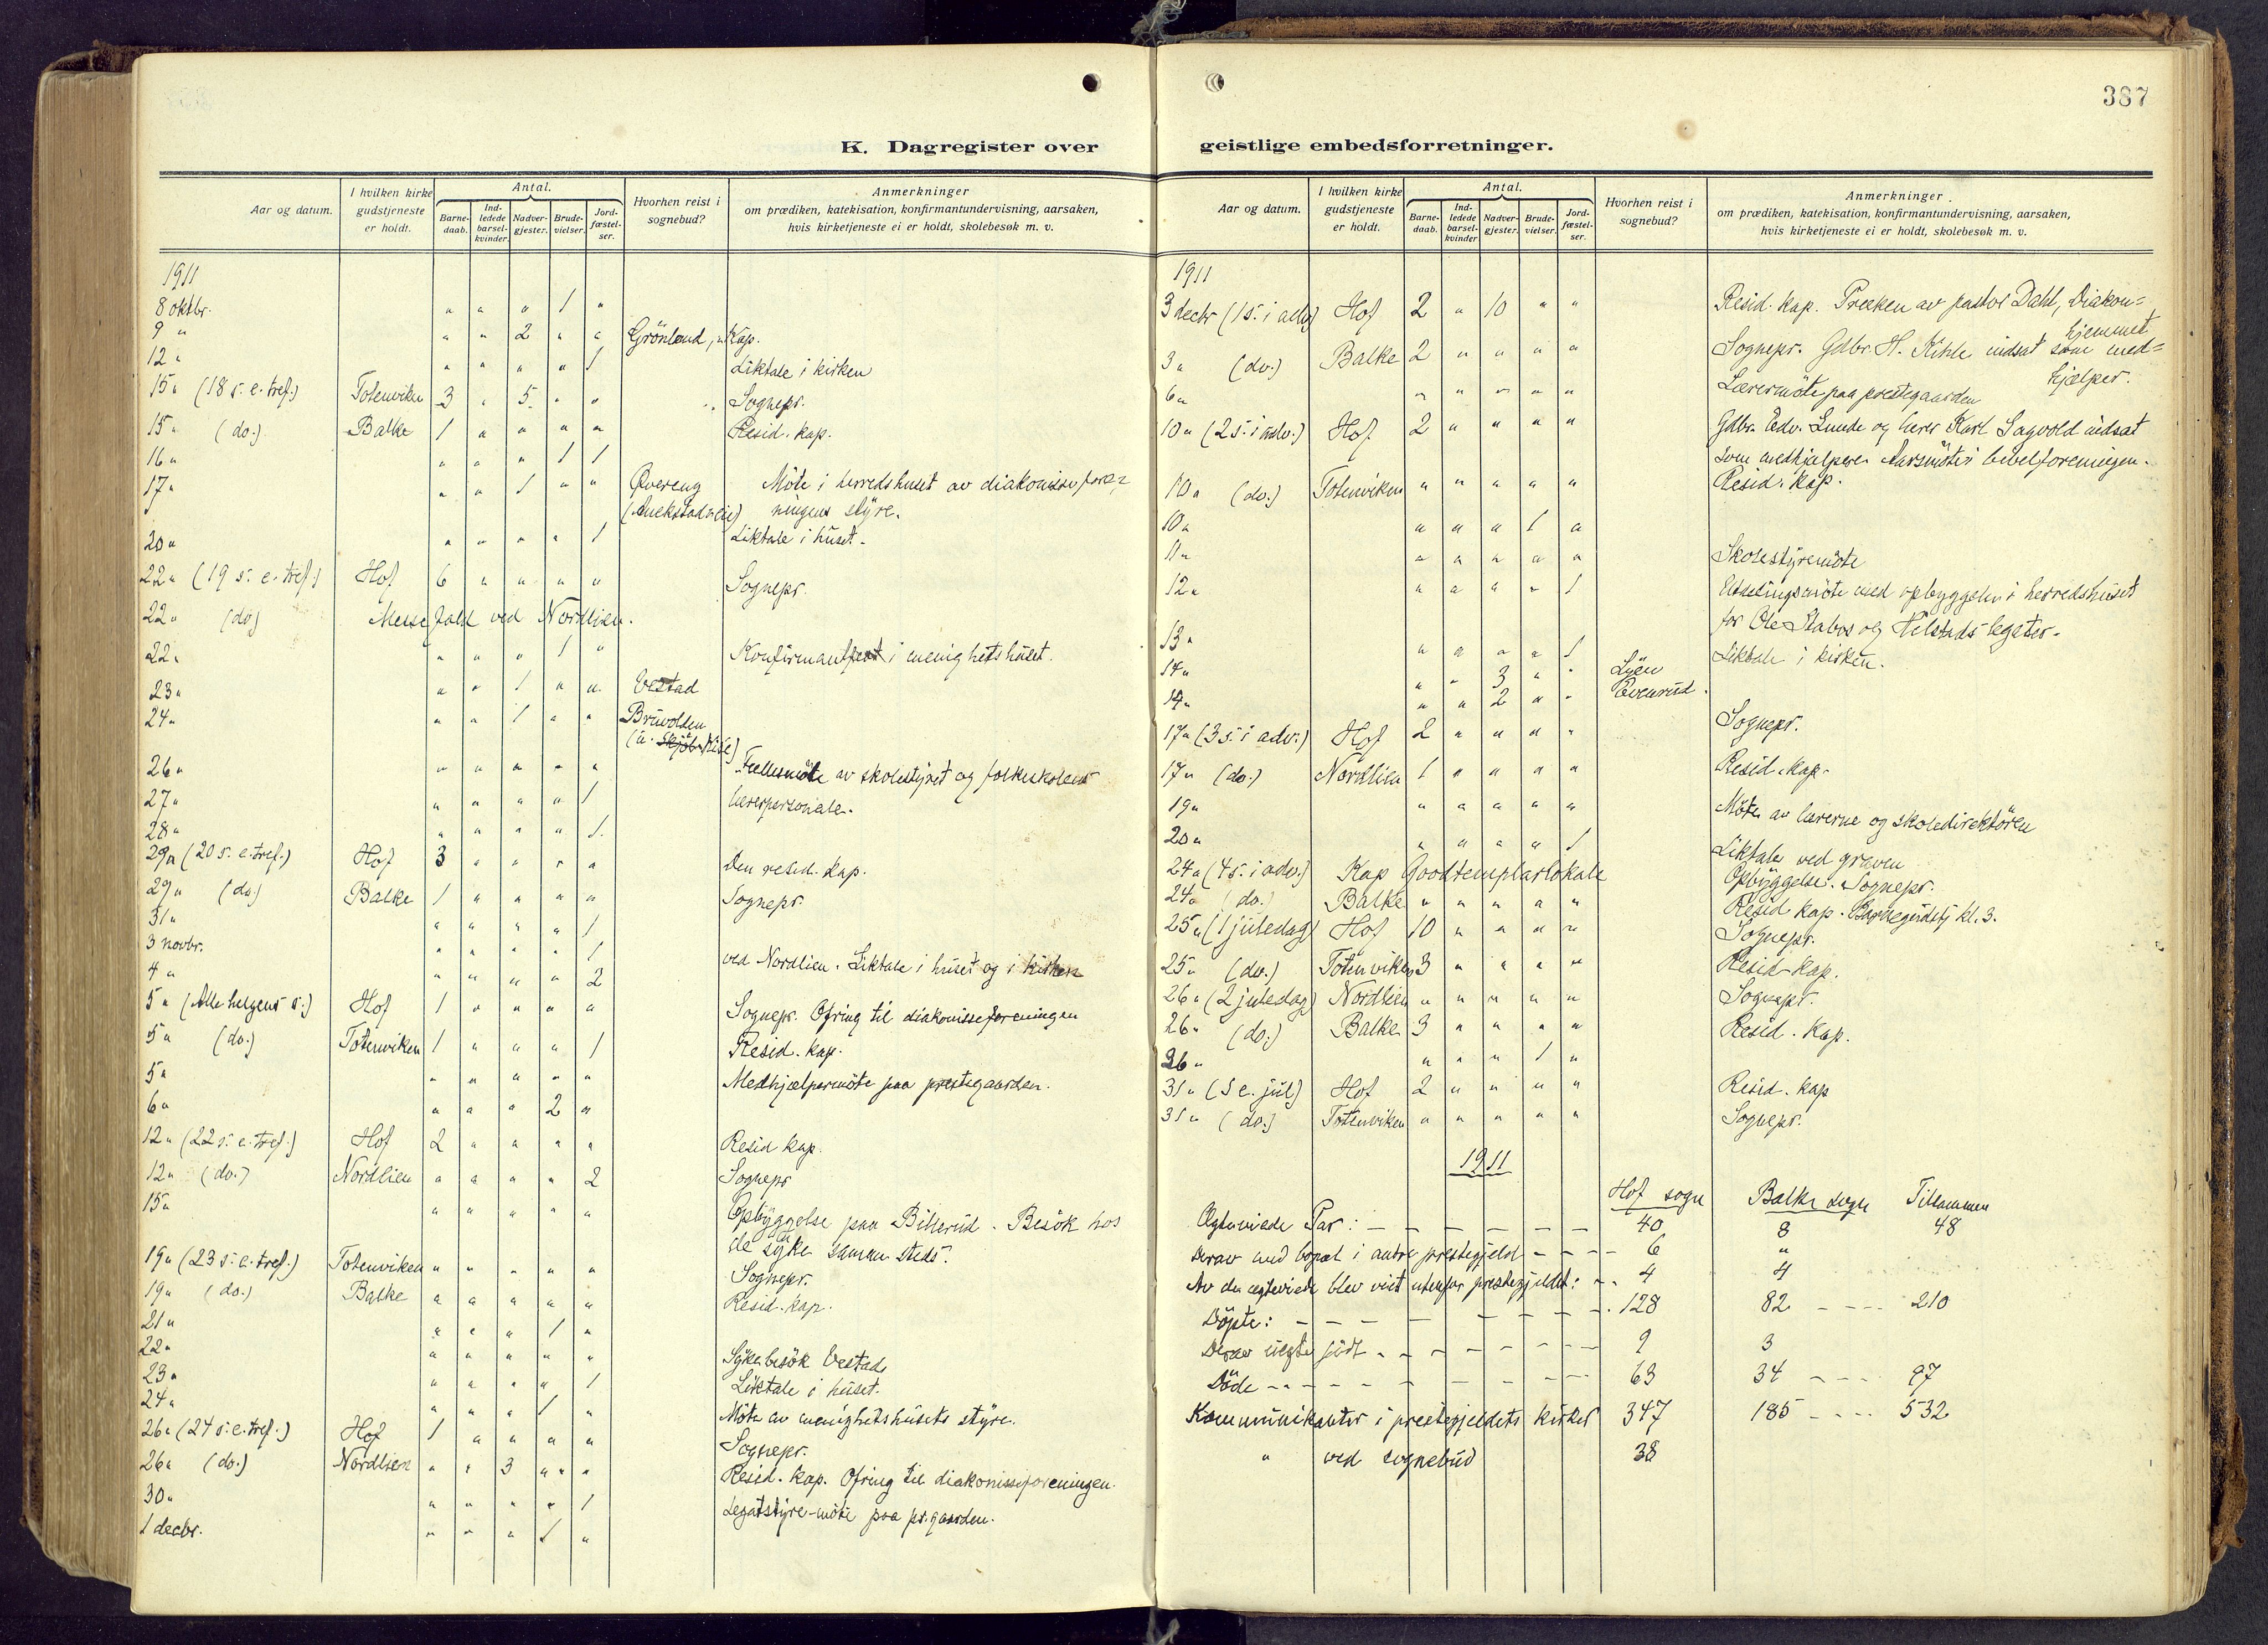 387
K. Dagregister over geistlige embedsforretninger.
Aar og datum. I hvilken kirke gudstjeneste er holdt. Antal. Barne-daab. Ind-ledede barsel-kvinder. Nadver-gjester. Brude-vielser. Jord-fæstel-ser. Hvorhen reist i sognebud? Anmerkninger om prædiken, katekisation, konfirmantundervisning, aarsaken, hvis kirketjeneste ei er holdt, skolebesøk m. v.
1911
8 oktbr. " " " 1 "
9 " " " 2 " " Grönland, Kap.
12 " " " " " 1 Liktale i kirken
15 " (18 s. e. tref.) Totenviken 3 " 5 " " Sognepr.
15 " (do.) Balke 1 " " " " Resid. kap.
16 " " " " 1 1
17 " " " 1 " " Övereng Möte i herredshuset av diakonissefore-
ningens styre.
20 " " " " " 1 Liktale i huset.
22 " (19 s. e. tref.) Hof 6 " " " " Sognepr.
22 " (do) Messefald ved Nordlien.
22 " " " " 1 " Konfirmantfest i menighetshuset.
23 " " " 1 " " Vestad
24 " " " 1 " " Bruvolden
26 " " " " " " Fellesmöte av skolestyret og folkeskolens
27 " " " " " 1 lærerpersonale.
28 " " " " " 1
29 " (20 s. e. tref.) Hof 3 " " " " Den resid. kap.
29 " (do.) Balke 1 " " " " Sognepr.
31 " " " " " 1
3 novbr. " " " " 1
4 " " " " " 2 ved Nordlien. Liktale i huset og i kirken
5 " (Alle helgens s.) Hof 1 " " " " Sognepr. Ofring til diakonisseforeningen
5 " (do.) Totenviken 1 " " " 1 Resid. kap.
5 " " " " " " Medhjælpermöte paa prestegaarden.
6 " " " " 2 "
12 " (22 s. e. tref.) Hof 2 " " " " Resid kap.
12 " (do.) Nordlien " " " " 2 Sognepr
15 " " " " " " Opbyggelse paa Billerud. Besök hos
de syke samme steds.
19 " (23 s. e. tref.) Totenviken " " " " " Sognepr.
19 " (do.) Balke " " " " " Resid. kap.
21 " " " " 1 "
22 " " " " " " Sykebesök Vestad
23 " " " " " 1 Liktale i huset.
24 " " " " 1 " Möte av menighetshusets styre.
26 " (24 s. e. tref.) Hof 1 " " " " Sognepr.
26 " (do.) Nordlien " " 3 " " Resid. kap. Ofring til diakonisseforeningen.
30 " " " " " 1 Legatstyre-möte paa pr.gaarden.
1 decbr. " " " 1 "
Aar og datum. I hvilken kirke gudstjeneste er holdt. Antal. Barne-daab. Ind-ledede barsel-kvinder Nadver-gjester. Brude-vielser. Jord-fæstel-ser. Hvorhen reist i sognebud? Anmerkninger om prædiken, katekisation, konfirmantundervisning, aarsaken, hvis kirketjeneste ei er holdt, skolebesøk m. v.
1911
3 decbr (1 s. i adv) Hof 2 " 10 " " Resid. kap. Præken av pastor Dahl, Diakon=
hjemmet
3 " (do.) Balke 2 " " " " Sognepr. Gdbr. H. Kihle indsat som med=
hjælper.
6 " " " " " " Lærermöte paa prestegaarden
10 " (2 s. i adv.) Hof 2 " " " " Gdbr. Edv. Lunde og lærer Karl Sagvold indsat
som medhjælpere. Aarsmöte i bibelforeningen.
10 " (do.) Totenviken " " " " " Resid. kap.
10 " " " " 1 "
11 " " " " " " Skolestyremöte
12 " " " " " 1 Utdelingsmöte med opbyggelse i herredshuset
for Ole Stabos og Hilstads legater.
13 " " " " " 1 Liktale i kirken.
14 " " " 3 " " Lyen
14 " " " 2 " " Evenrud.
17 " (3 s. i adv.) Hof 2 " " " " Sognepr.
17 " (do.) Nordlien 1 " " " " Resid. kap.
19 " " " " " " Möte av lærerne og skoledirektören
20 " " " " " 1 Liktale ved graven
24 " (4 s. i adv.) Kap Goodtemplarlokale Opbyggelse. Sognepr.
24 " (do.) Balke " " " " " Resid kap. Barnegudstj kl. 3.
25 " (1 juledag) Hof 10 " " " " Sognepr.
25 " (do.) Totenviken 3 " " " " Resid. kap.
26 " (2 juledag) Nordlien " " " " " Sognepr.
26 " (do.) Balke 3 " " " " Resid. kap.
26 " " " " 1 "
31 " (s e. jul) Hof 2 " " " " Resid. kap
31 " (do.) Totenviken " " " " " Sognepr.
1911
Hof sogn Balke sogn Tilsammen
Ægteviede Par: 40 8 48
Derav med bopæl i andre prestegjeld 6 "
Av de ægteviede blev viet utenfor prestegjeldet: 4 4
Döpte: 128 82 210
Derav uegte födt 9 3
Döde 63 34 97
Kommunikanter i prestegjeldets kirker 347 185 532
" ved sognebud 38